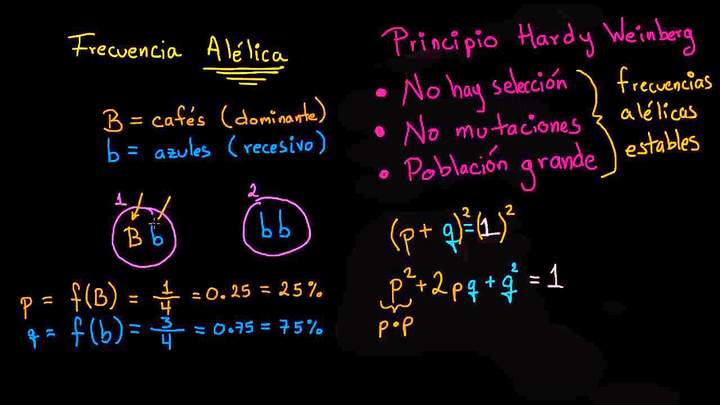 Frecuencia Alélica
B = cafés (dominante)
b = azules (recesivo)
1
B b
2
b b
p = f(B) = 1/4 = 0.25 = 25%
q = f(b) = 3/4 = 0.75 = 75%
Principio Hardy Weinberg
• No hay selección
• No mutaciones
• Población grande
frecuencias
alélicas
estables
(p + q)² = (1)²
p² + 2pq + q² = 1
p•p